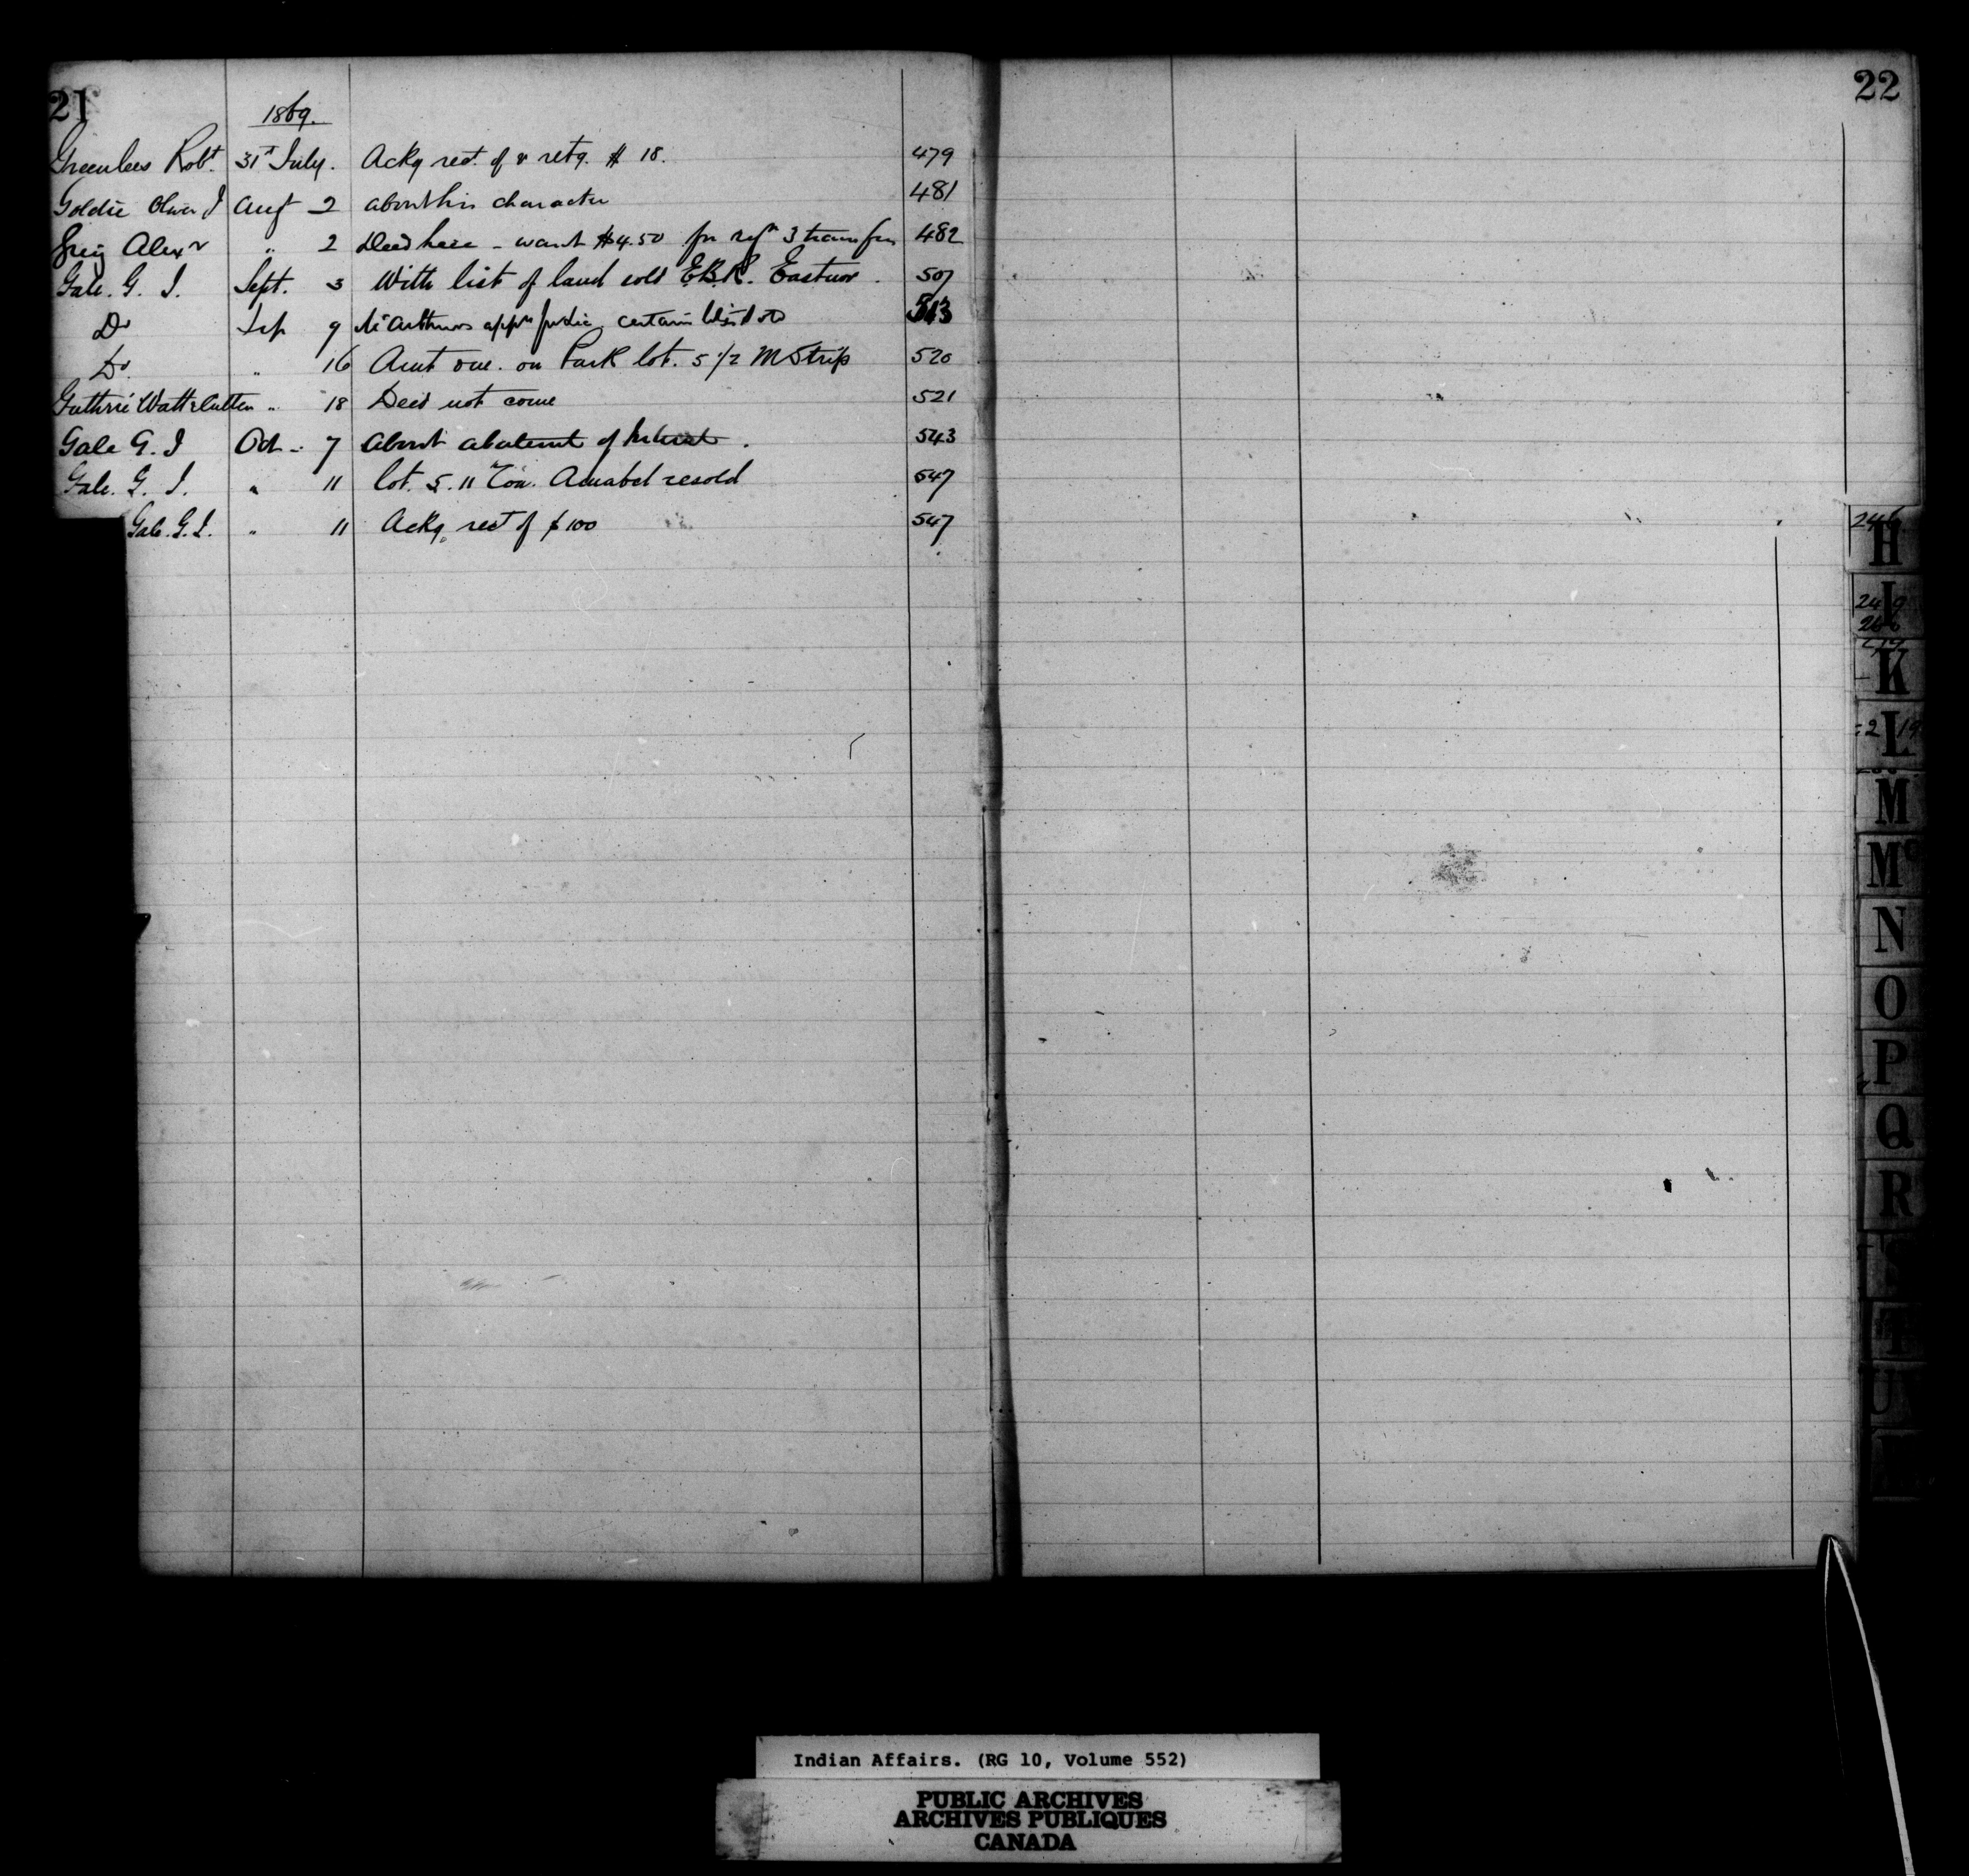 21
1869.
Greenlees Robt. 31st July. Ackg rect. of & retg. $ 18. 479
Goldie Oliver J Augt 2 about his character 481
Greig Alexr " 2 Deed here - want $4.50 for regn 3 transfers 482
Gale. G. J. Sept. 3 With list of land sold E.B.R. Eastnor. 507
Do Sep 9 McArthurs appn certain 513
Do " 16 Amt due. on Park lot. 5 1/2 M Strip 520
Guthrie Watt & Cutten " 18 Deed not come 521
Gale G. J Oct - 7 about abatemt of Interest. 543
Gale. G. J. " 11 lot. 5. 11 Con. Amabel resold 547
Gale. G. J. " 11 Ackg. rect of $100 547
22
246
H
I
K
L
M
Mc
N
O
P
Q
R
S
T
U
Indian Affairs. (RG 10, Volume 552)
PUBLIC ARCHIVES
ARCHIVES PUBLIQUES
CANADA